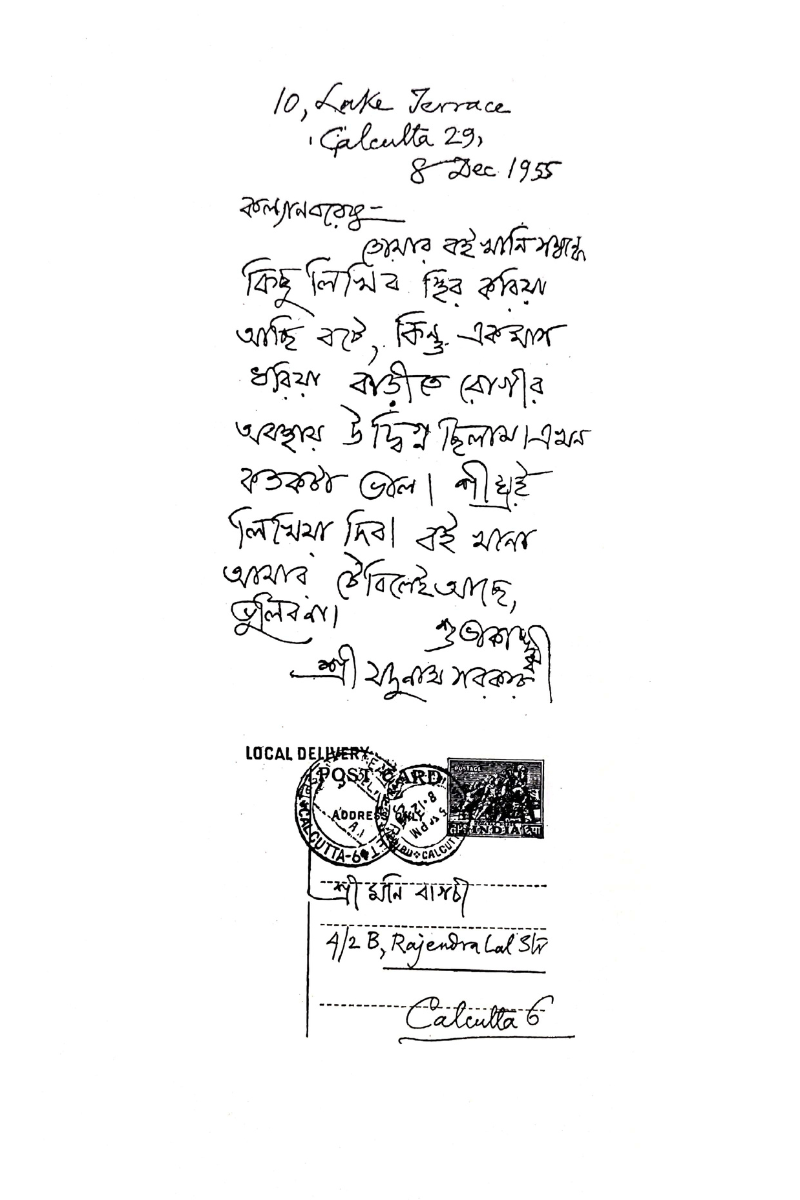 10, Lake Terrace
Calcutta 29,
8 Dec. 1955
কল্যানবরেষু—
তোমার বই খানি সম্বন্ধে
কিছু লিখিব স্থির করিয়া
আছি বটে, কিন্তু একমাস
ধরিয়া বাড়ীতে রোগীর
অবস্থায় উদ্বিগ্ন ছিলাম। এখন
কতকটা ভাল। শীঘ্রই
লিখিয়া দিব। বই খানা
আমার টেবিলেই আছে,
ভুলিব না।
শুভাকাঙ্ক্ষী
শ্রী যদুনাথ সরকার
LOCAL DELIVERY
POST CARD
ADDRESS ONLY
POSTAGE
INDIA
CALCUTTA-6
5 PM
8-12
CALCUT
শ্রী মনি বাগচী
4/2 B, Rajendra Lal Str
Calcutta 6